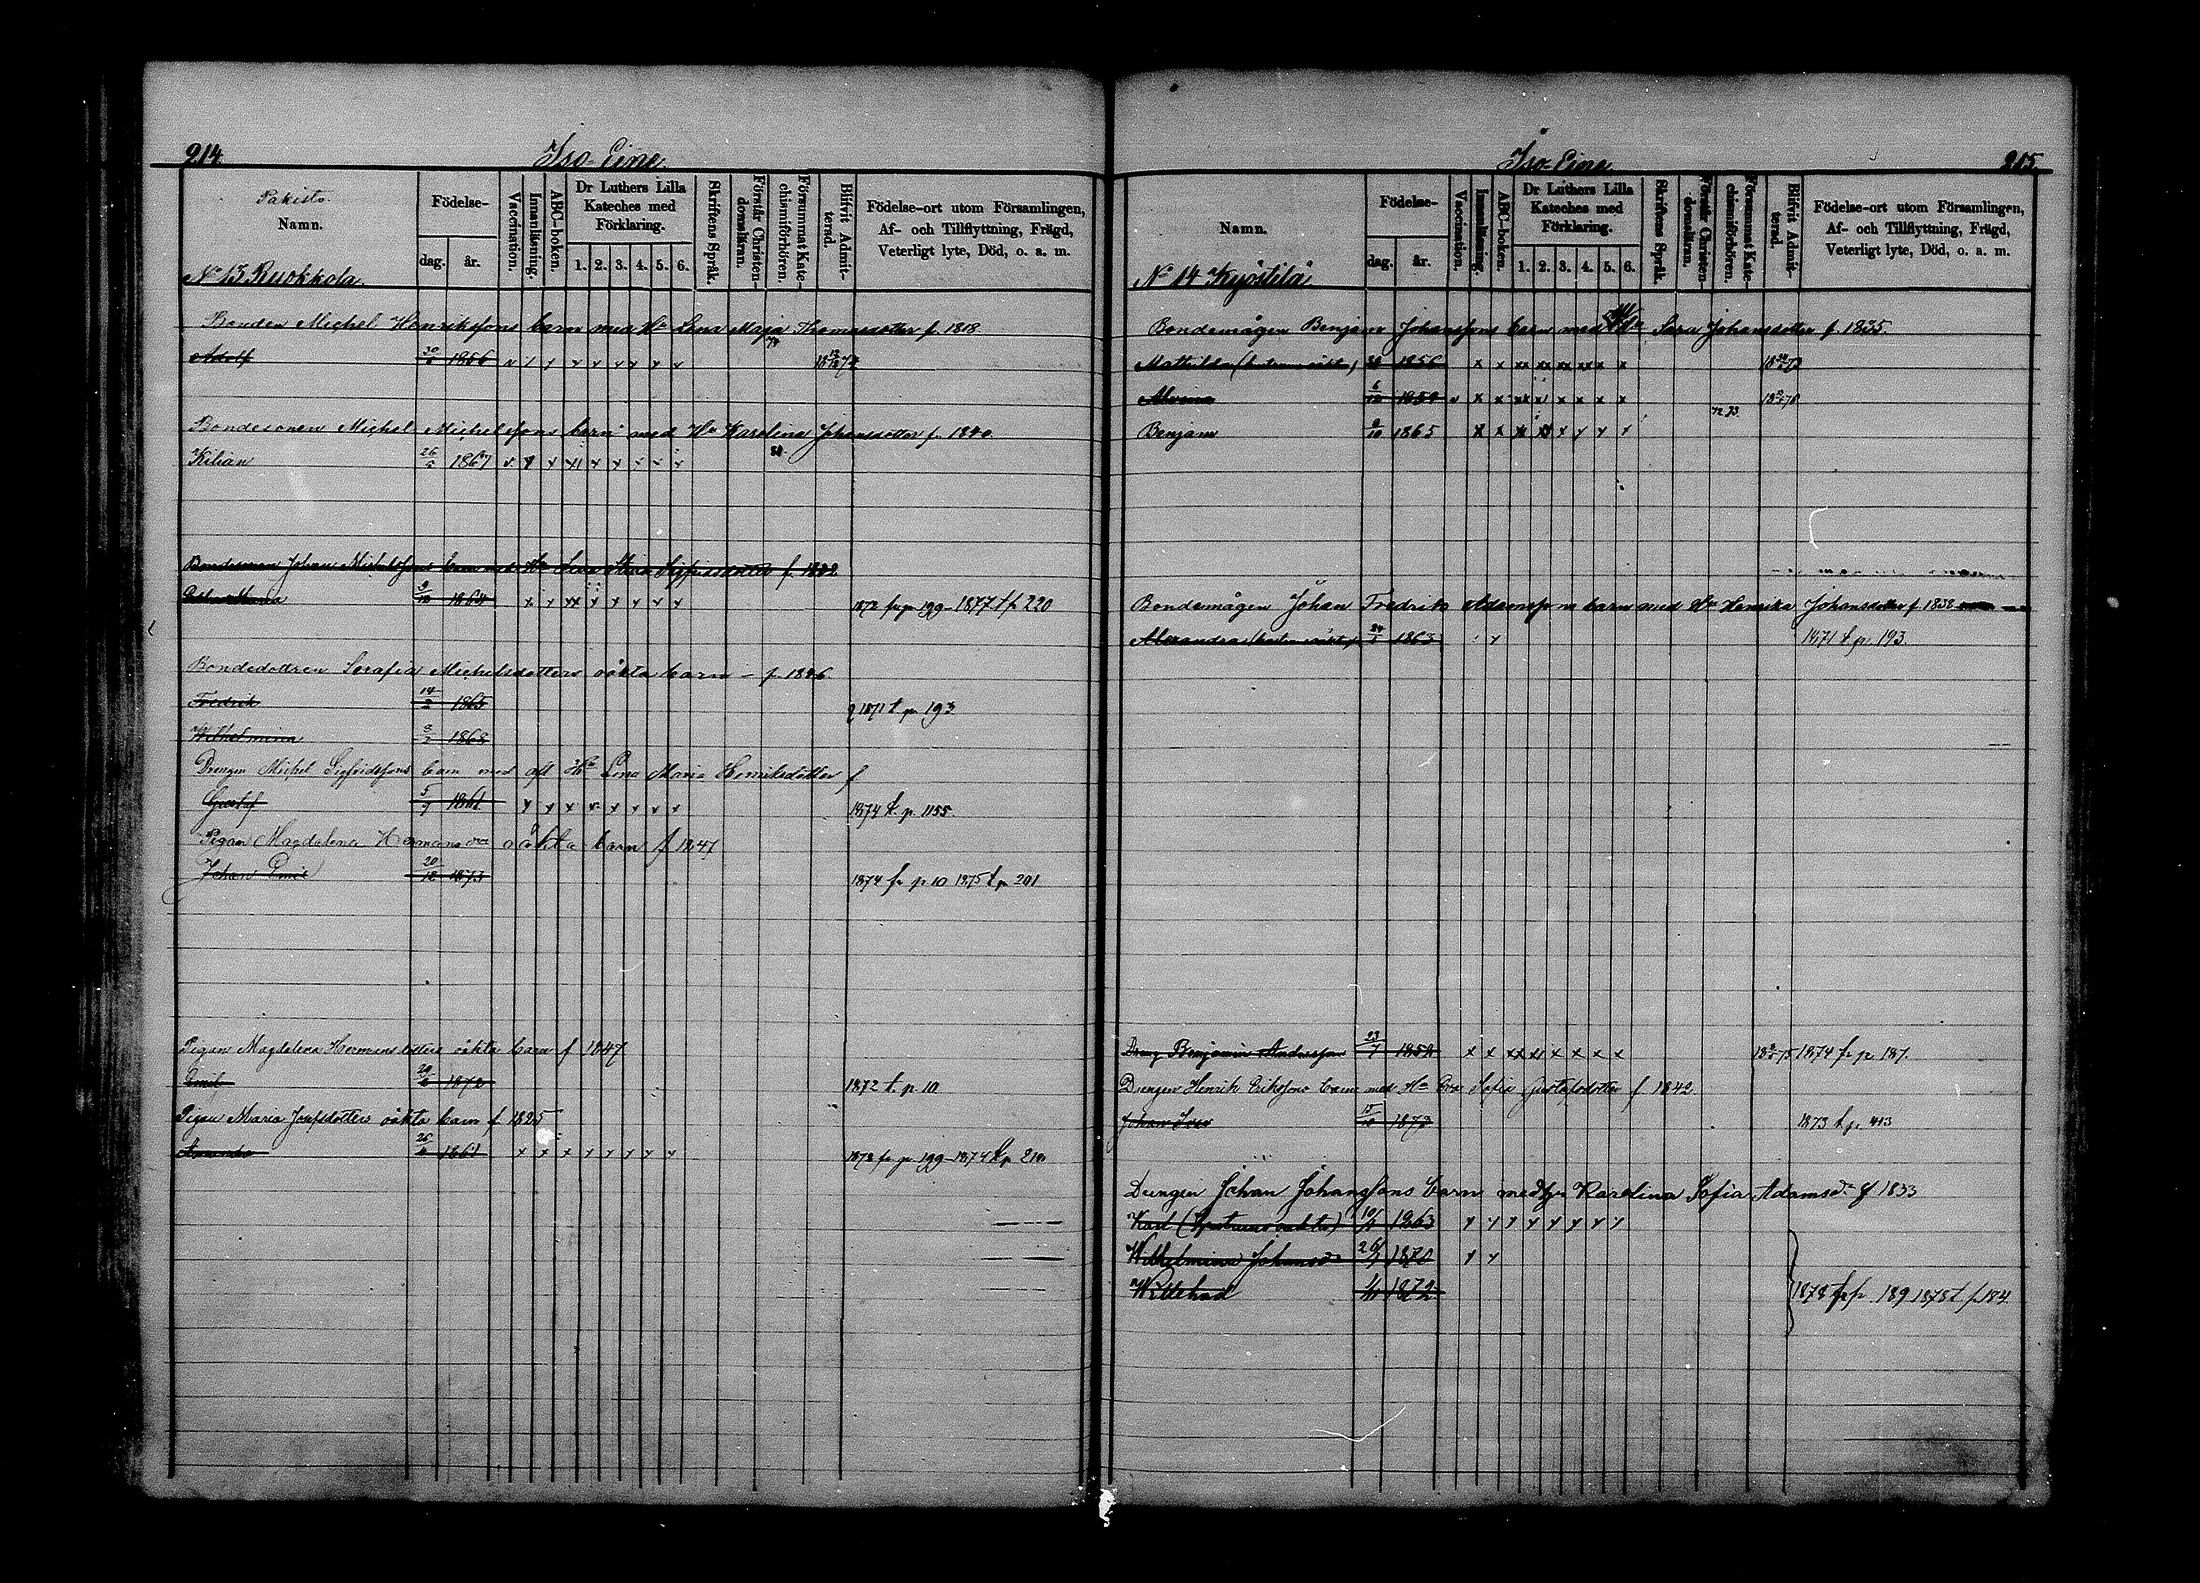 214.
Iso-Eine.
Pakisto
Namn.
Födelse-
dag.
år.
Vaccination.
Innanläsning.
ABC-boken.
Dr Luthers Lilla
Kateches med
Förklaring.
1. 2. 3. 4. 5. 6.
Skriftens Språk.
Förstår Christen-
domsläran.
Försummat Kate-
chismiförhören.
Blifvit Admit-
terad.
Födelse-ort utom Församlingen,
Af- och Tillflyttning, Frägd,
Veterligt lyte, Död, o. a. m.
No 13 Ruokkola.
Bonden Michel Henrikssons barn med Hu Lena Maja Thomasdotter f. 1818
Adolf 30 1856 v
Bondesonen Michel Michelssons barn med Hu Karolina Johansdotter f. 1840
Kilian 26/5 1867 v
Bondesonen Johan Michelssons barn med Hu Lena Stina Sigfridsdotter f. 1832
Maria 1864 x 1872 fr p 199 - 1877 t p 220
Bondedottren Serafia Michelsdotters oäkta barn - f. 1846
Fredrik 14 1865 1871 t p 193
Wilhelmina 1868
Drengen Michel Sigfridssons barn med afl Hu Lena Maria Henriksdotter f
Gustaf 5 1861 1874 t. p. 1155.
Pigan Magdalena Hermansdr oäkta barn f 1847
Johan Emil 20/12 1873 1874 fr p 10 1875 t p 201
Pigan Magdalena Hermansdotters oäkta barn f 1847
Emil 1872 1872 t. p 10
Pigan Maria Josefsdotters oäkta barn f. 1825
Amanda 26 1861 1872 fr p 199 - 1874 t p 210
Iso-Eine
215.
Namn.
Födelse-
dag.
år.
Vaccination.
Innanläsning.
ABC-boken.
Dr Luthers Lilla
Kateches med
Förklaring.
1. 2. 3. 4. 5. 6.
Skriftens Språk.
Förstår Christen-
domsläran.
Försummat Kate-
chismiförhören.
Blifvit Admit-
terad.
Födelse-ort utom Församlingen,
Af- och Tillflyttning, Frägd,
Veterligt lyte, Död, o. a. m.
No 14 Kyöstilä
Bondemågen Benjam Johanssons barn med Hu Sara Johansdotter f. 1835
Mathilda 1856
Alvina 6/12 1859 v
72 73
Benjam 9/10 1865
Bondemågen Johan Fredrik Adamssons barn med Hu Henrika Johansdotter f. 1832
Alexandra 24 1863 1871 t p. 193
Dreng Benjamin Andersson 23/7 1852 1874 fr p. 187.
Drengen Henrik Erikssons barn med Hu Eva Sofia Gustafsdotter f 1842.
Johan Ivar 15/10 1872 1873 t p. 413
Drengen Johan Johanssons barn med hu Karolina Sofia Adamsdr f 1833
Karl 10 1863
Wilhelmina Johansdr 26/2 1870
Willehad 1872
1878 fr p. 189 1878 t p 184